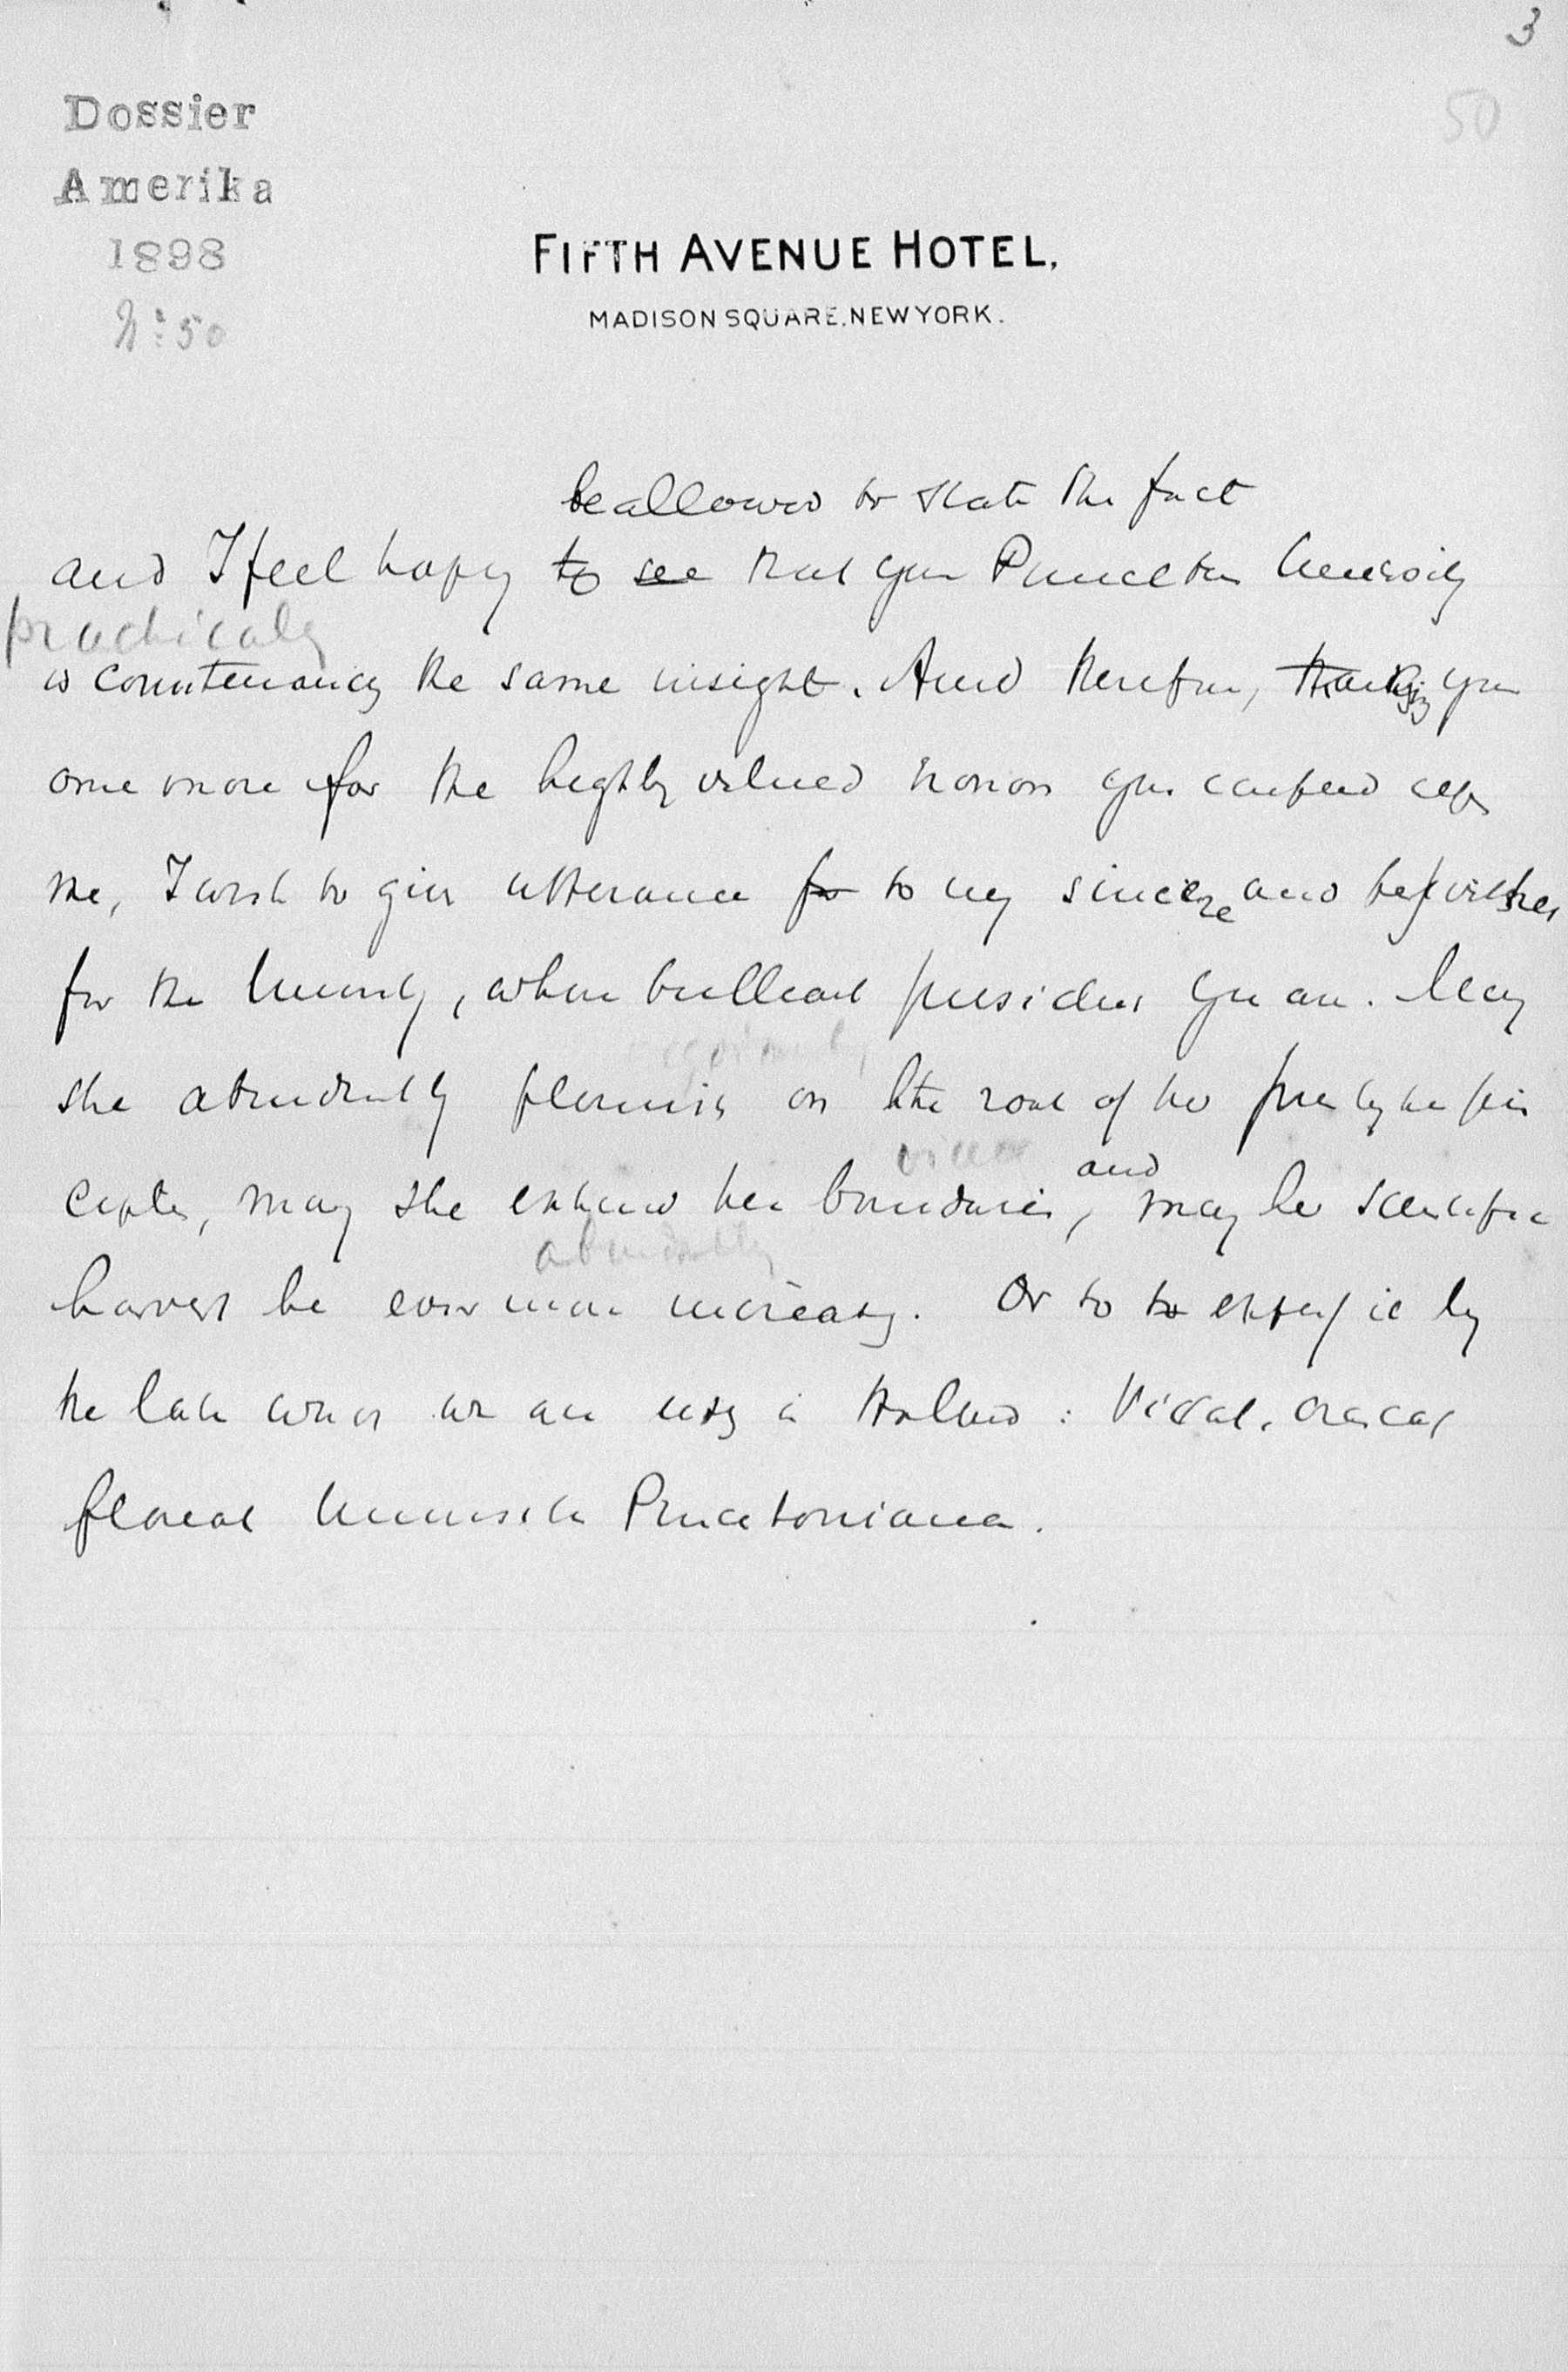 3
50
Dossier
Amerika
1898
N: 50
FIFTH AVENUE HOTEL,
MADISON SQUARE, NEW YORK.
be allowed to state the fact
and I feel happy to see that your Princeton University
practicaly
is countenancing the same insight. And therefore, thanking you
once more for the highly valued honor you confered upon
me, I wish to give utterance for to my sincere and best wishes
for the University, whose brilliant president you are. May
she abundantly flourish on the root of her
wider
and
cepts, may she extend her boundaries, may her scientific
abundantly
harvest be ever more increasing. Or to to express it by
the latin words we are using in Holland: Vivat, crescat
floreat Universitas Princetoniana.